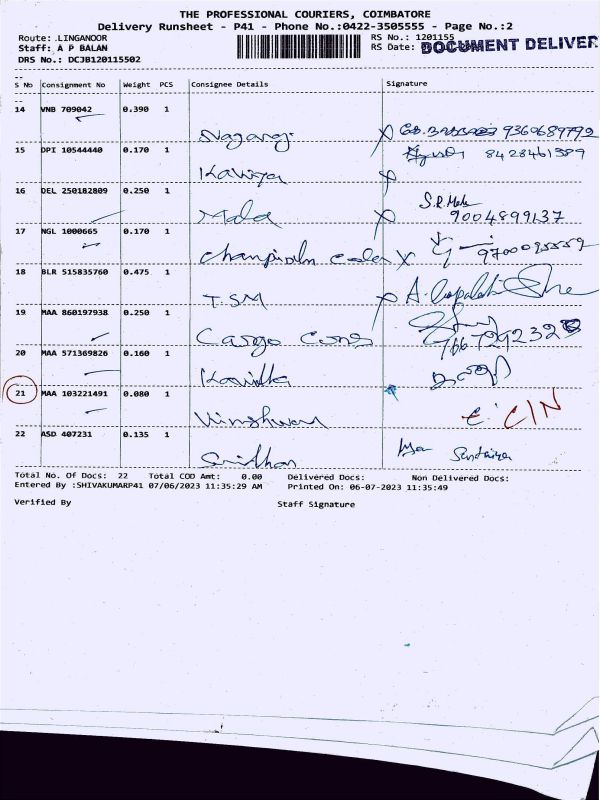 THE PROFESSIONAL COURIERS, COIMBATORE
Delivery Runsheet - P41 - Phone No.:0422-3505555 - Page No.:2
Route: .LINGANOOR
Staff: A P BALAN
DRS No.: DCJB120115502
RS No.: 1201155
RS Date:
DOCUMENT DELIVER
S No Consignment No Weight PCS Consignee Details Signature
14 VNB 709042 0.390 1
Nagaraj 9360689792
15 DPI 10544440 0.170 1
8428461389
Kaviya
16 DEL 250182809 0.250 1
S.R. Mala
Mala 9004899137
17 NGL 1000665 0.170 1
18 BLR 515835760 0.475 1
T.S.M
19 MAA 860197938 0.250 1
Cargo Cons
20 MAA 571369826 0.160 1
Kavitha
21 MAA 103221491 0.080 1
C/N
22 ASD 407231 0.135 1
Sridhar
Total No. Of Docs: 22 Total COD Amt: 0.00 Delivered Docs: Non Delivered Docs:
Entered By :SHIVAKUMARP41 07/06/2023 11:35:29 AM Printed On: 06-07-2023 11:35:49
Verified By Staff Signature